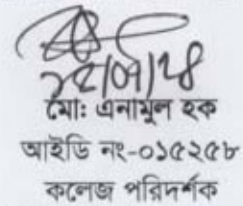 মো: এনামুল হক
আইডি নং-০১৫২৫৮
কলেজ পরিদর্শক